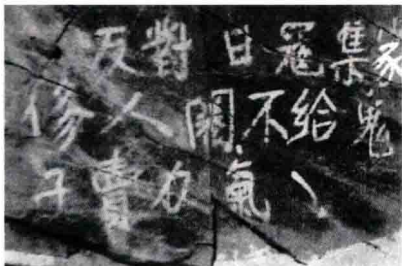 反對日寇集家
修人圈不给鬼
子賣力氣、